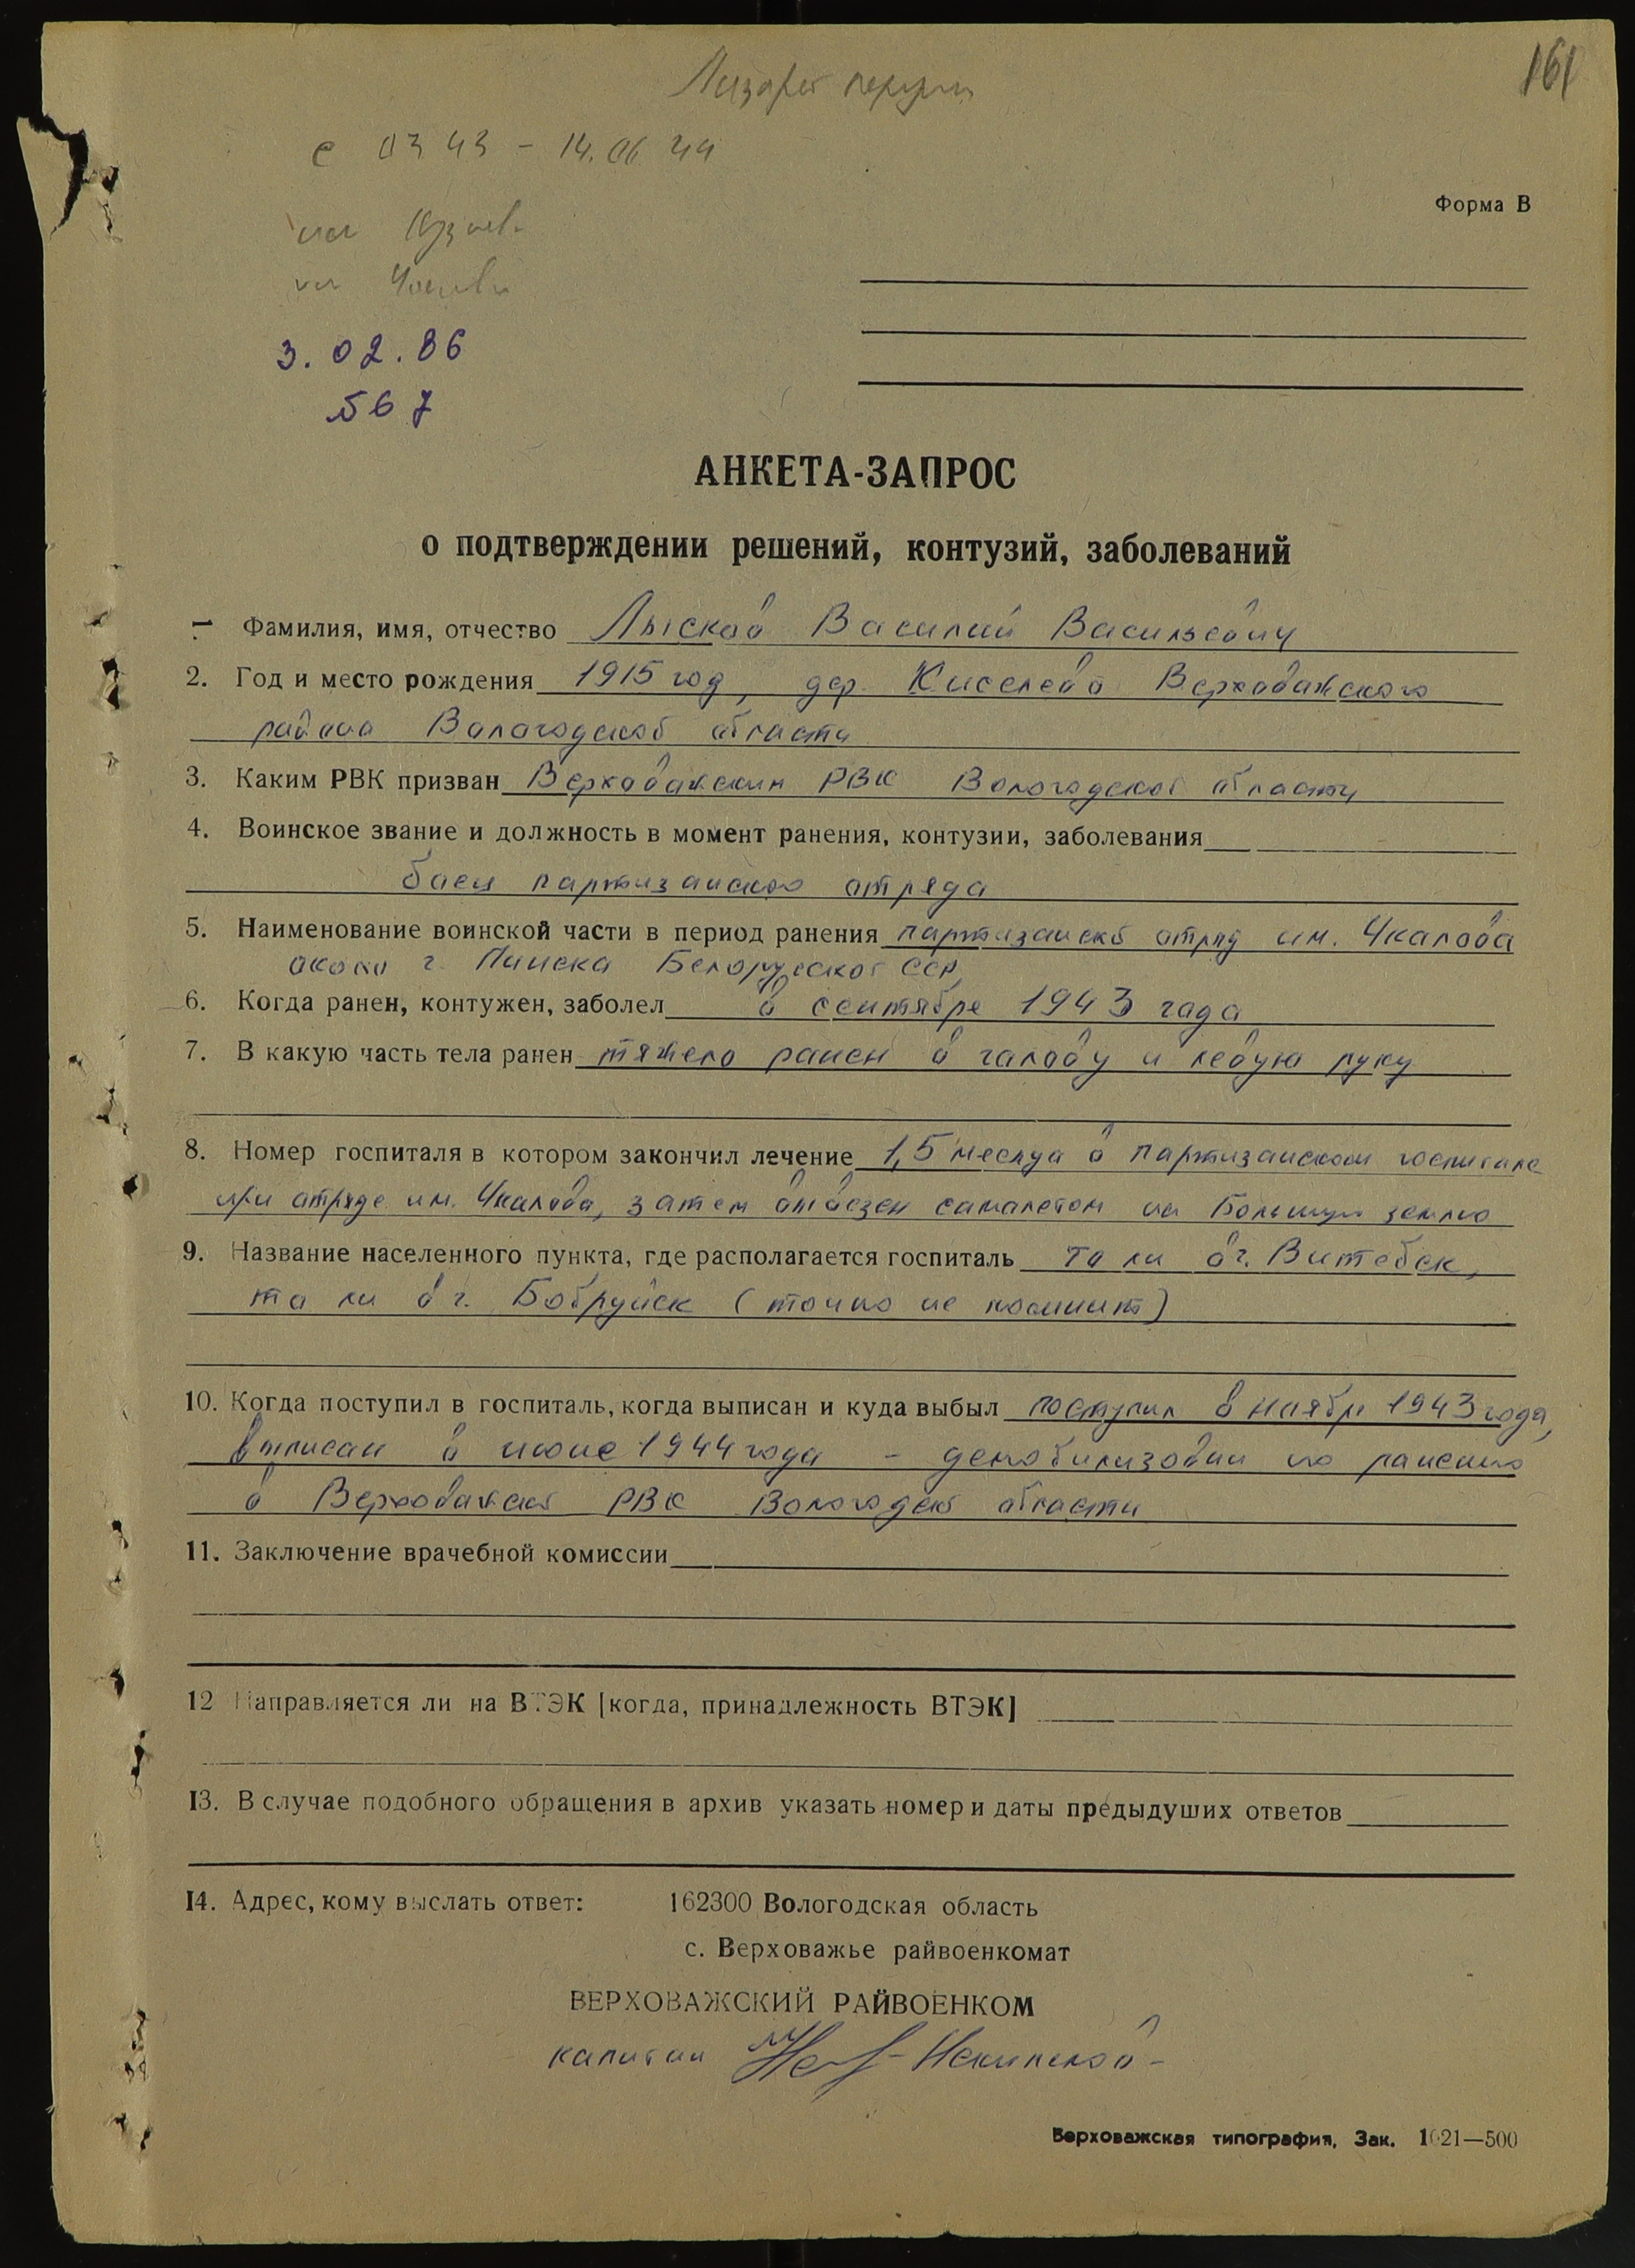 161
с 03 43 - 14.06 44
Форма В
3.02.86
567
АНКЕТА-ЗАПРОС
о подтверждении решений, контузий, заболеваний
1 Фамилия, имя, отчество Лысков Василий Васильевич
2. Год и место рождения 1915 год, дер. Киселево Верховажского
района Вологодской области
3. Каким РВК призван Верховажским РВК Вологодской области
4. Воинское звание и должность в момент ранения, контузии, заболевания
боец партизанского отряда
5. Наименование воинской части в период ранения партизанский отряд им. Чкалова
около г. Пинска Белорусской ССР
6. Когда ранен, контужен, заболел в сентябре 1943 года
7. В какую часть тела ранен тяжело ранен в голову и левую руку
8. Номер госпиталя в котором закончил лечение 1,5 месяца в партизанском госпитале
при отряде им. Чкалова, затем отвезен самолетом на Большую землю
9. Название населенного пункта, где располагается госпиталь то ли в г. Витебск,
то ли в г. Бобруйск (точно не помнит)
10. Когда поступил в госпиталь, когда выписан и куда выбыл поступил в ноябре 1943 года,
выписан в июне 1944 года - демобилизован по ранению
в Верховажский РВК Вологодской области
11. Заключение врачебной комиссии
12 Направляется ли на ВТЭК [когда, принадлежность ВТЭК]
13. В случае подобного обращения в архив указать номер и даты предыдуших ответов
14. Адрес, кому выслать ответ: 162300 Вологодская область
с. Верховажье райвоенкомат
ВЕРХОВАЖСКИЙ РАЙВОЕНКОМ
капитан
Верховажская типография, Зак. 1021—500